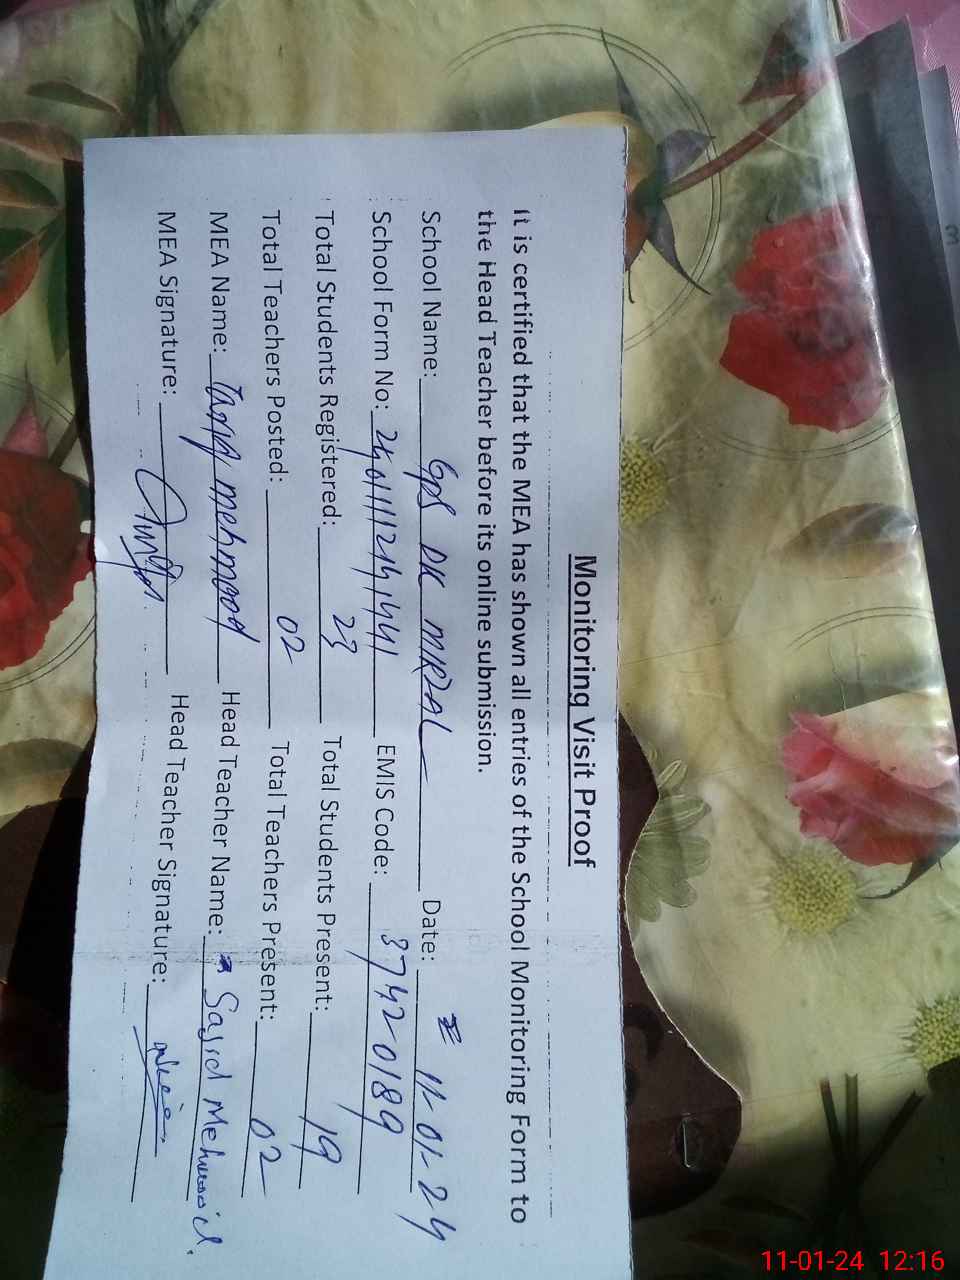 Monitoring Visit Proof
It is certified that the MEA has shown all entries of the School Monitoring Form to
the Head Teacher before its online submission.
School Name: GPS DK MRZAL Date: 11-01-24
School Form No: EMIS Code: 37420189
Total Students Registered: 23 Total Students Present: 19
Total Teachers Posted: 02 Total Teachers Present: 02
MEA Name: mehmood Head Teacher Name: Sajid Mehmood
MEA Signature: Head Teacher Signature:
11-01-24 12:16